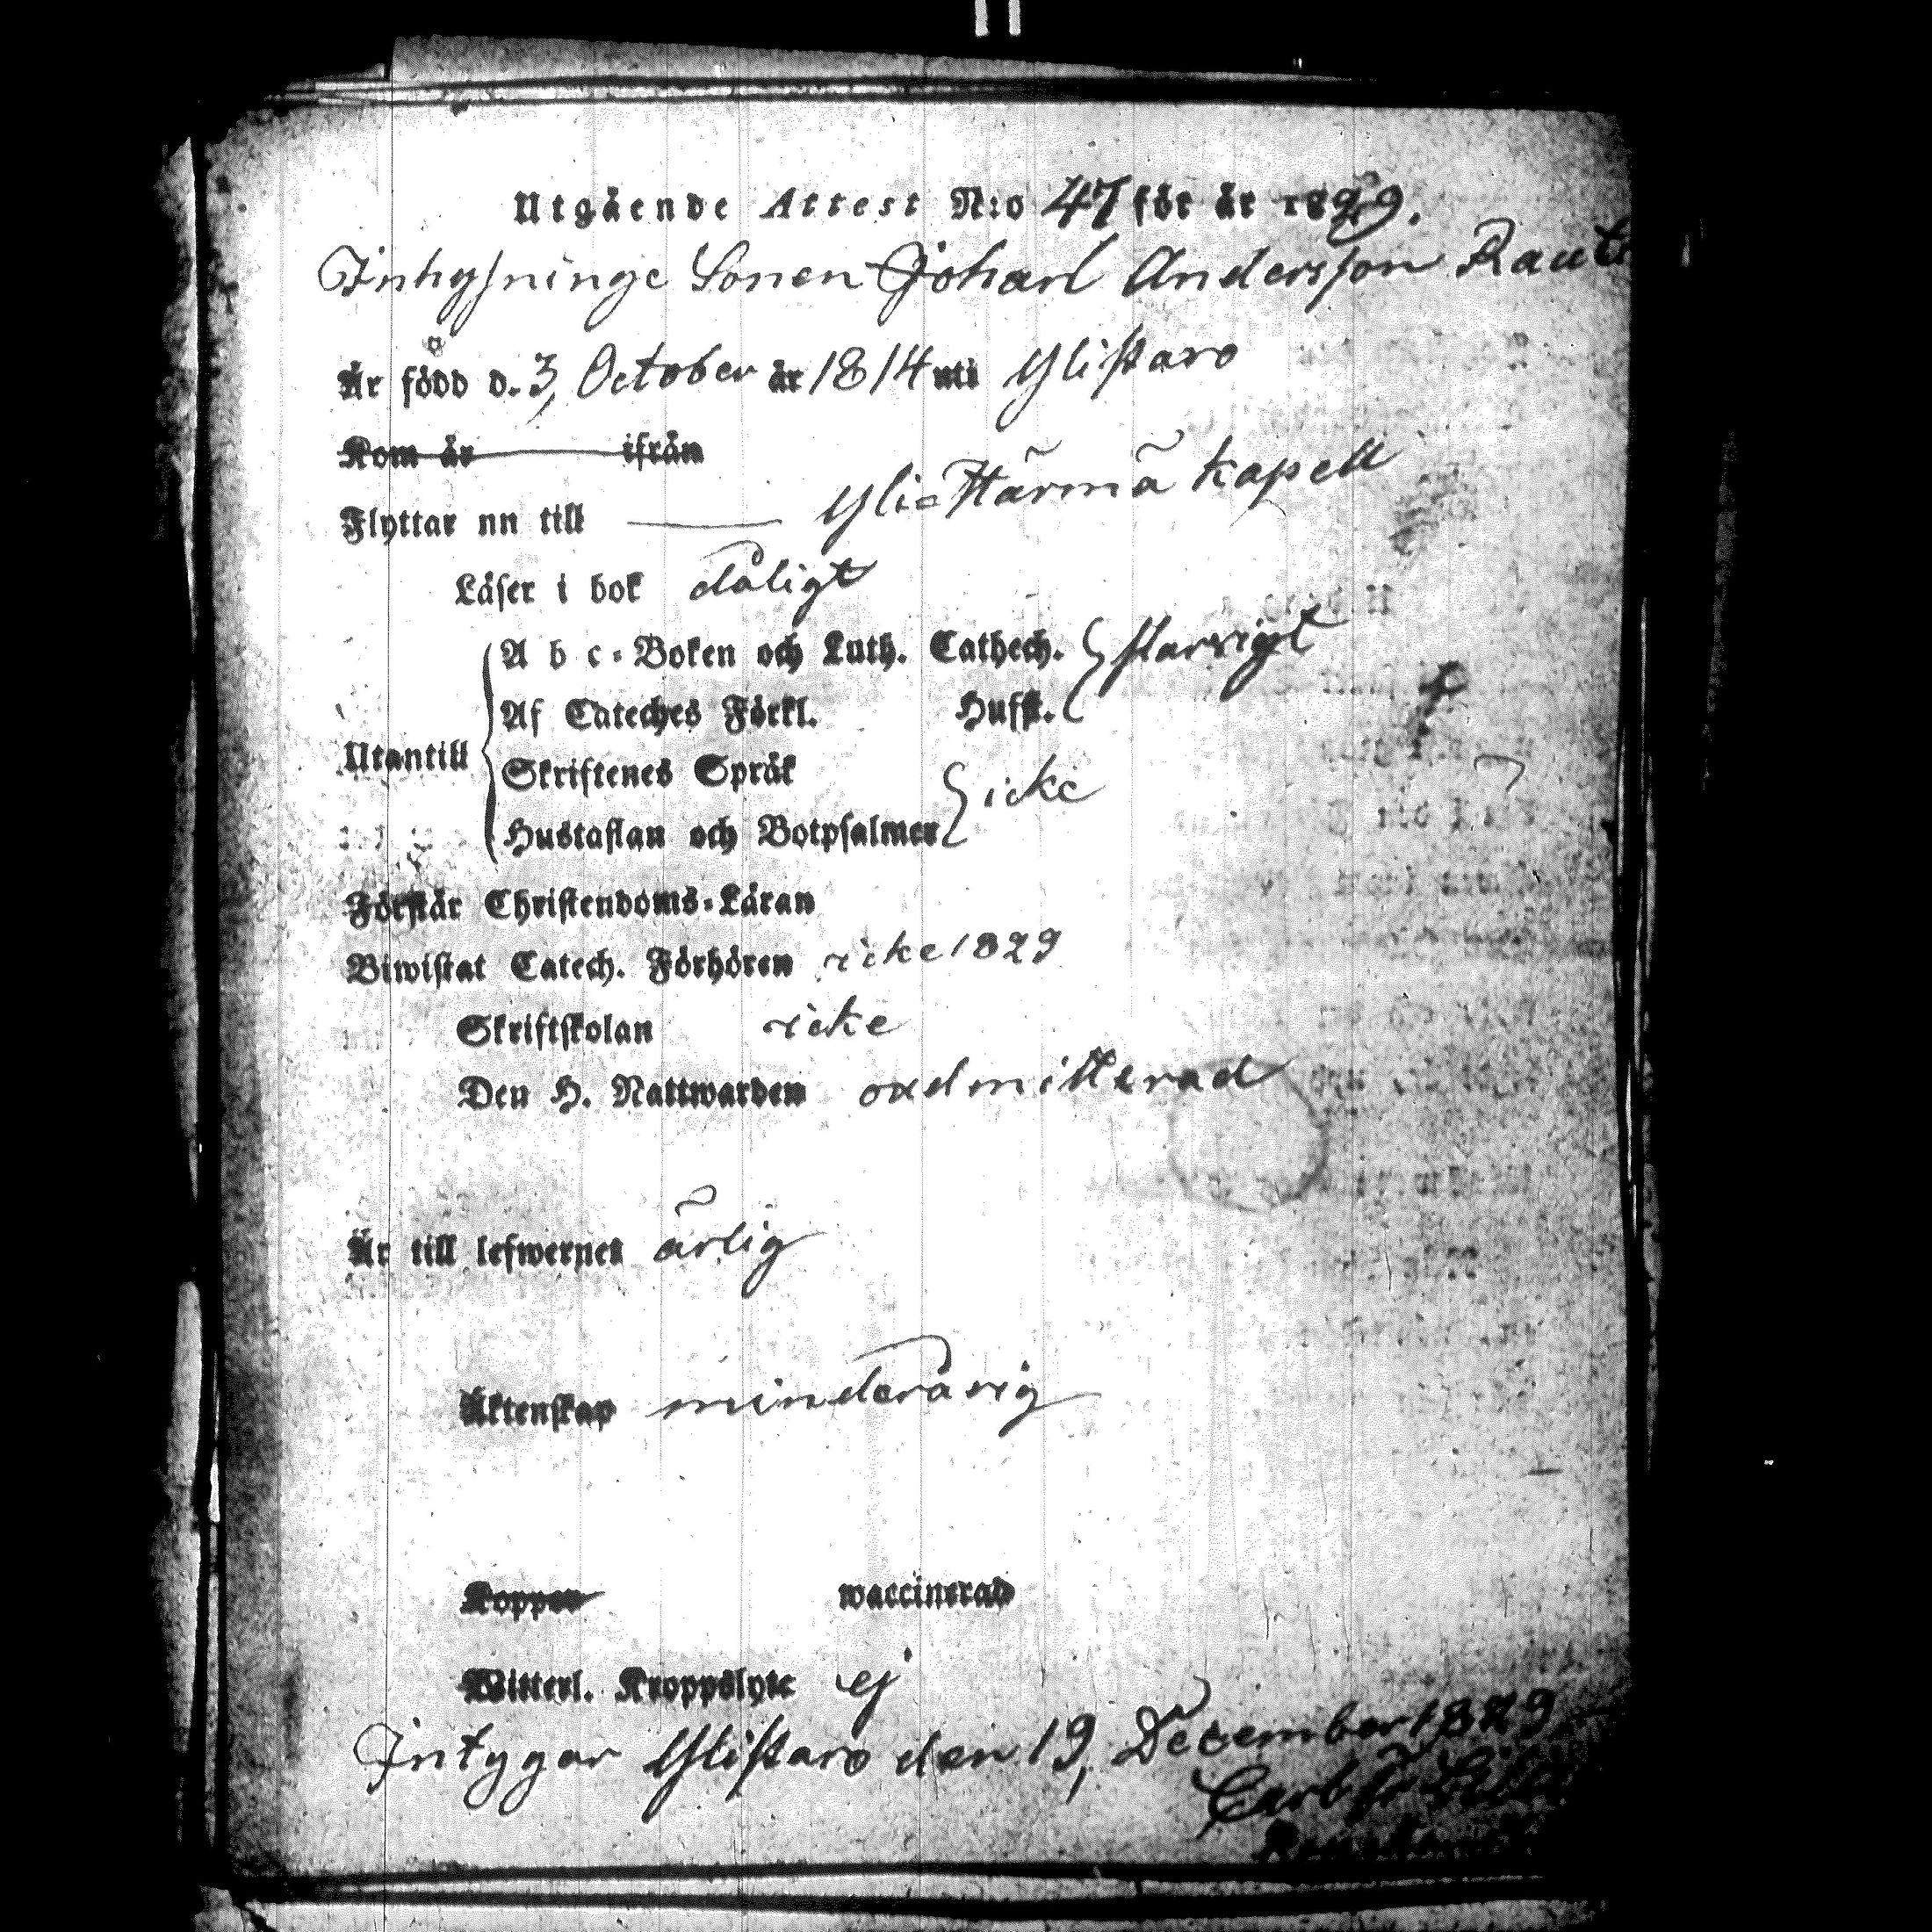 Utgående Attest N:o 47 för år 1829.
Inhysninge Sonen Johan Andersson
Är född d. 3, October år 1814 uti Ylistaro
Kom år ifrån
Flyttar nu till Yli=Härmä kapell
Läser i bok dåligt
A b c=Boken och Luth. Cathech. } starvigt
Af Cateches Förkl. Husft.
Utantill
Skriftenes Språk } icke
Hustaflan och Botpsalmer
Förstår Christendoms=Läran
Biwistat Catech. Förhören icke 1829
Skriftskolan icke
Den H. Nattwarden oadmitterad
Är till lefwernet ärlig
Äktenskap minderårig
Koppor waccinerad
Witterl. Kroppslyte ej
Intygar Ylistaro den 19, December 1829